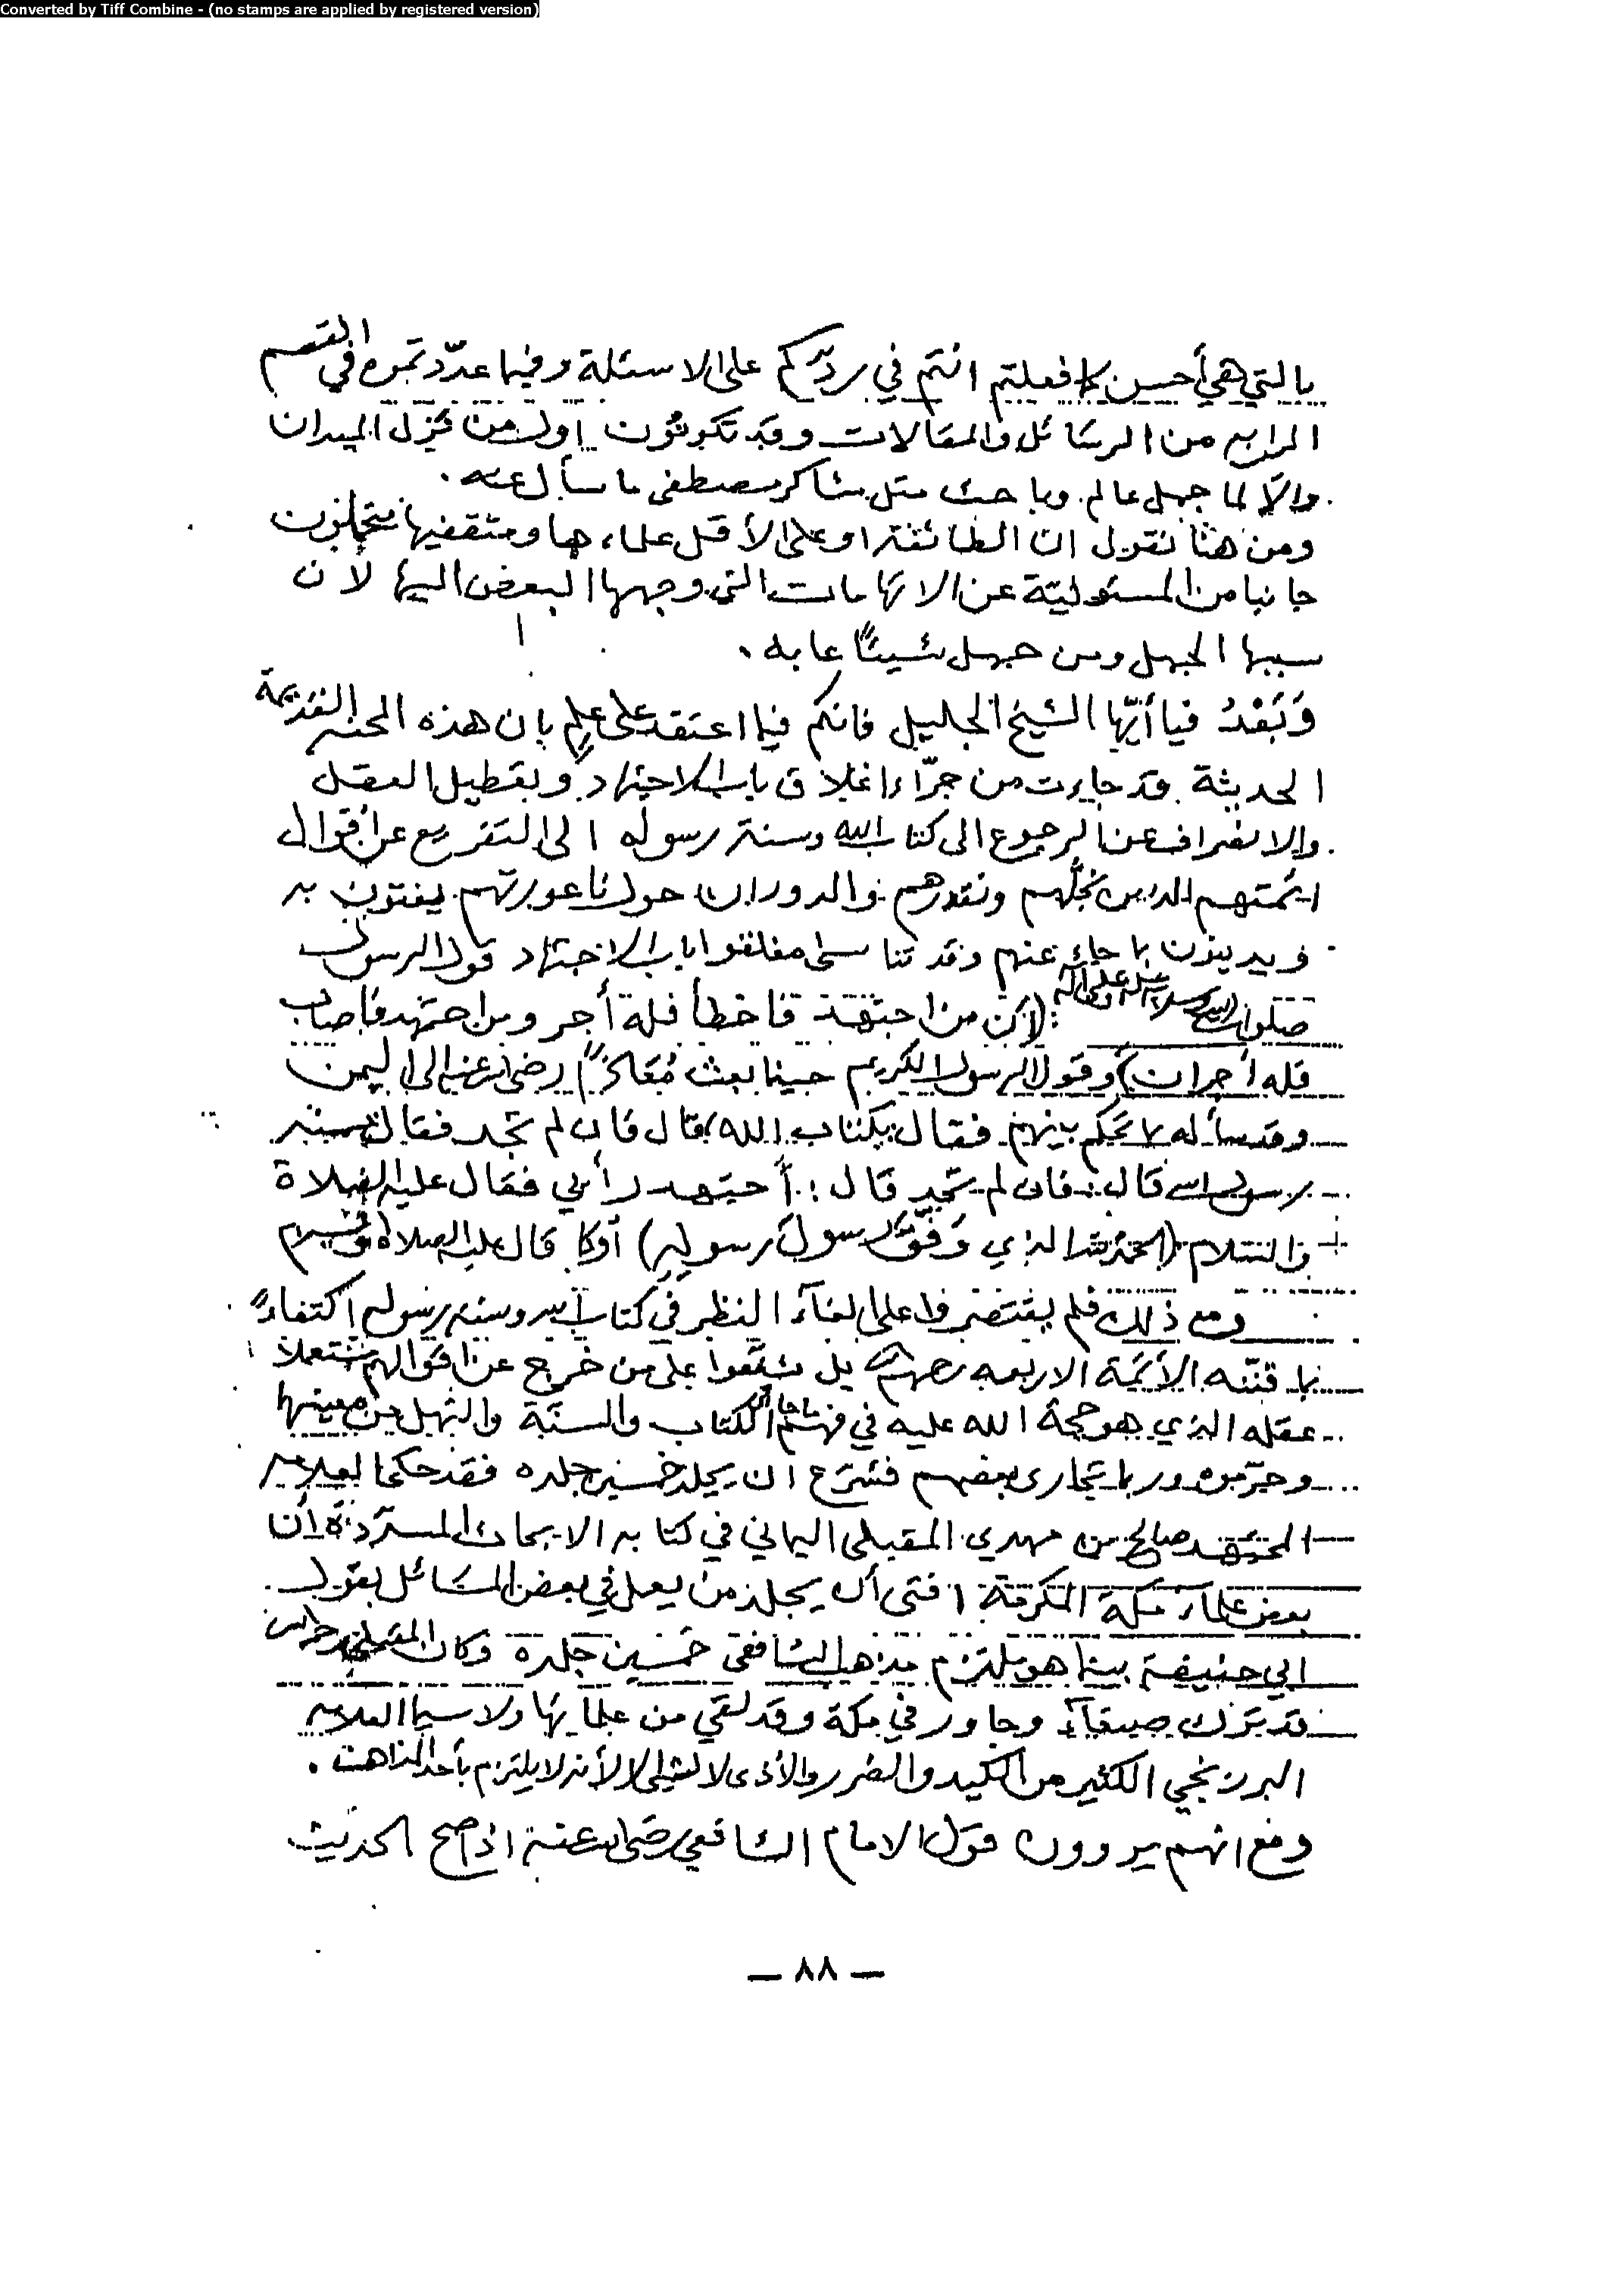 Converted by Tiff Combine - (no stamps are applied by registered version)
بالتي هي أحسن كما فعلتم انتم في ردّكم على الاسئلة وفيما عدّدتموه في القسم
الرابع من الرسائل والمقالات وقد تكونون اول من نزل الميدان
والّا لما جهل عالم وباحث مثل شاكر مصطفى ما سأل عنه .
ومن هنا نقول ان الطائفة او على الأقل علماءها ومثقفيها يتحملون
جانبا من المسئولية عن الاتهامات التي وجهها البعض اليها لان
سببها الجهل ومن جهل شيئاً عابه .
وَبَعْدُ فيا أيّها الشيخ الجليل فانكم فيما اعتقد على علم بان هذه المحنة القديمة
الحديثة قد جاءت من جرّاء اغلاق باب الاجتهاد وتعطيل العقل
والانصراف عن الرجوع الى كتاب الله وسنة رسوله الى التفريع عن أقوال
ائمتهم الذين نجلّهم ونقدرهم والدوران حول ناعورتهم يفتون به
ويدينون بما جاء عنهم وقد تناسى مغلقوا باب الاجتهاد قول الرسول
صلوات الله وسلامه عليه وعلى آله : (لأن من اجتهد فاخطأ فله أجر ومن اجتهد فأصاب
فله أجران) وقول الرسول الكريم حينما بعث مُعَاذاً رضي الله عنه الى اليمن
وقد سأله بم تحكم بينهم فقال بكتاب الله قال فان لم تجد فقال بسنة
رسول الله قال : فان لم تجد قال : أجتهد رأيي فقال عليه الصلاة
والسلام (الحمد لله الذي وَفّق رسول رسوله) أو كما قال عليه الصلاة والسلام
ومع ذلك فلم يقتصروا على الغاء النظر في كتاب الله وسنة رسوله اكتفاءً
بما قننه الأئمة الاربعه رحمهم الله بل شنّعوا على من خرج عن اقوالهم مشتعملا
عقله الذي هو حجة الله عليه في فهم ما جاء في الكتاب والسنّة والنهل من معينها
وحرّموه وربما تجارى بعضهم فشرع ان يجلد خمسين جلده فقد حكى العلامه
المجتهد صالح بن مهدي المقبلي اليماني في كتابه الابحاث المسدّدة أن
بعض علماء مكة المكرمة افتى أن يجلد من يعمل في بعض المسائل بقول
ابي حنيفة بينما هو يلتزم مذهب الشافعي خمسين جلدة وكان المقبلي رحمه الله
قد ترك صنعاء وجاور في مكة وقد لقي من علمائها ولا سيما العلامه
البرزنجي الكثير من الكيد والضرر والأذى لا لشيء الا لأنه لا يلتزم بأحد المذاهب .
ومع انهم يروون قول الامام الشافعي رضي الله عنه اذا صح الحديث
— ٨٨ —